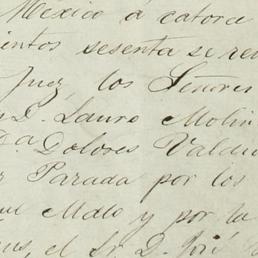 Mexico á catorce
ientos sesenta se reu
Juez, los Señores
D. Lauro Molin
Da Dolores Valdu
Parada por los
el Malo y por la
el Sr. D. José